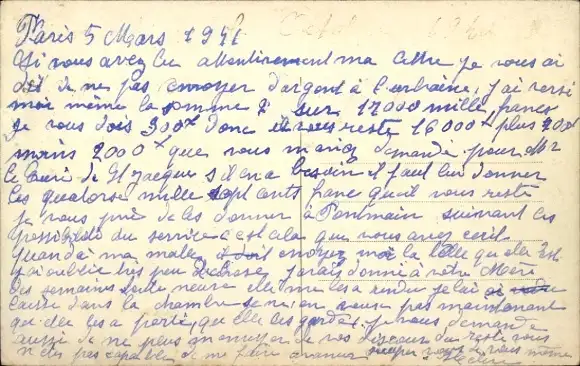 Paris 5 Mars 1941
Si vous avez lu attentivement ma lettre je vous ai
dit de ne pas envoyer d'argent à l'urbaine, j'ai versé
moi même la somme sur 17000 mille francs
je vous dois 300 donc il vous reste 16000 plus 700
moins 2000 que vous m'avez demandé pour Mr
le curé de St Jacques s'il en a besoin il faut lui donner
les quatorse mille sept cents franc qu'il vous reste
je vous prie de les donner à Pontmain suivant les
possibilité du service c'est cela que vous avez
quand à ma malle envoyez moi la telle qu'elle est
j'ai oublié très peu de chose, j'avais donné à votre Mère
les semaines toute neuve elle me les a rendu je l'ai
laissé dans la chambre je ne en veux pas maintenant
que elle les a porté, que elle les garde. je vous demande
aussi de ne plus m'envoyer de vos discours du reste vous
n'êtes pas capable de me faire occuper vous de vous même